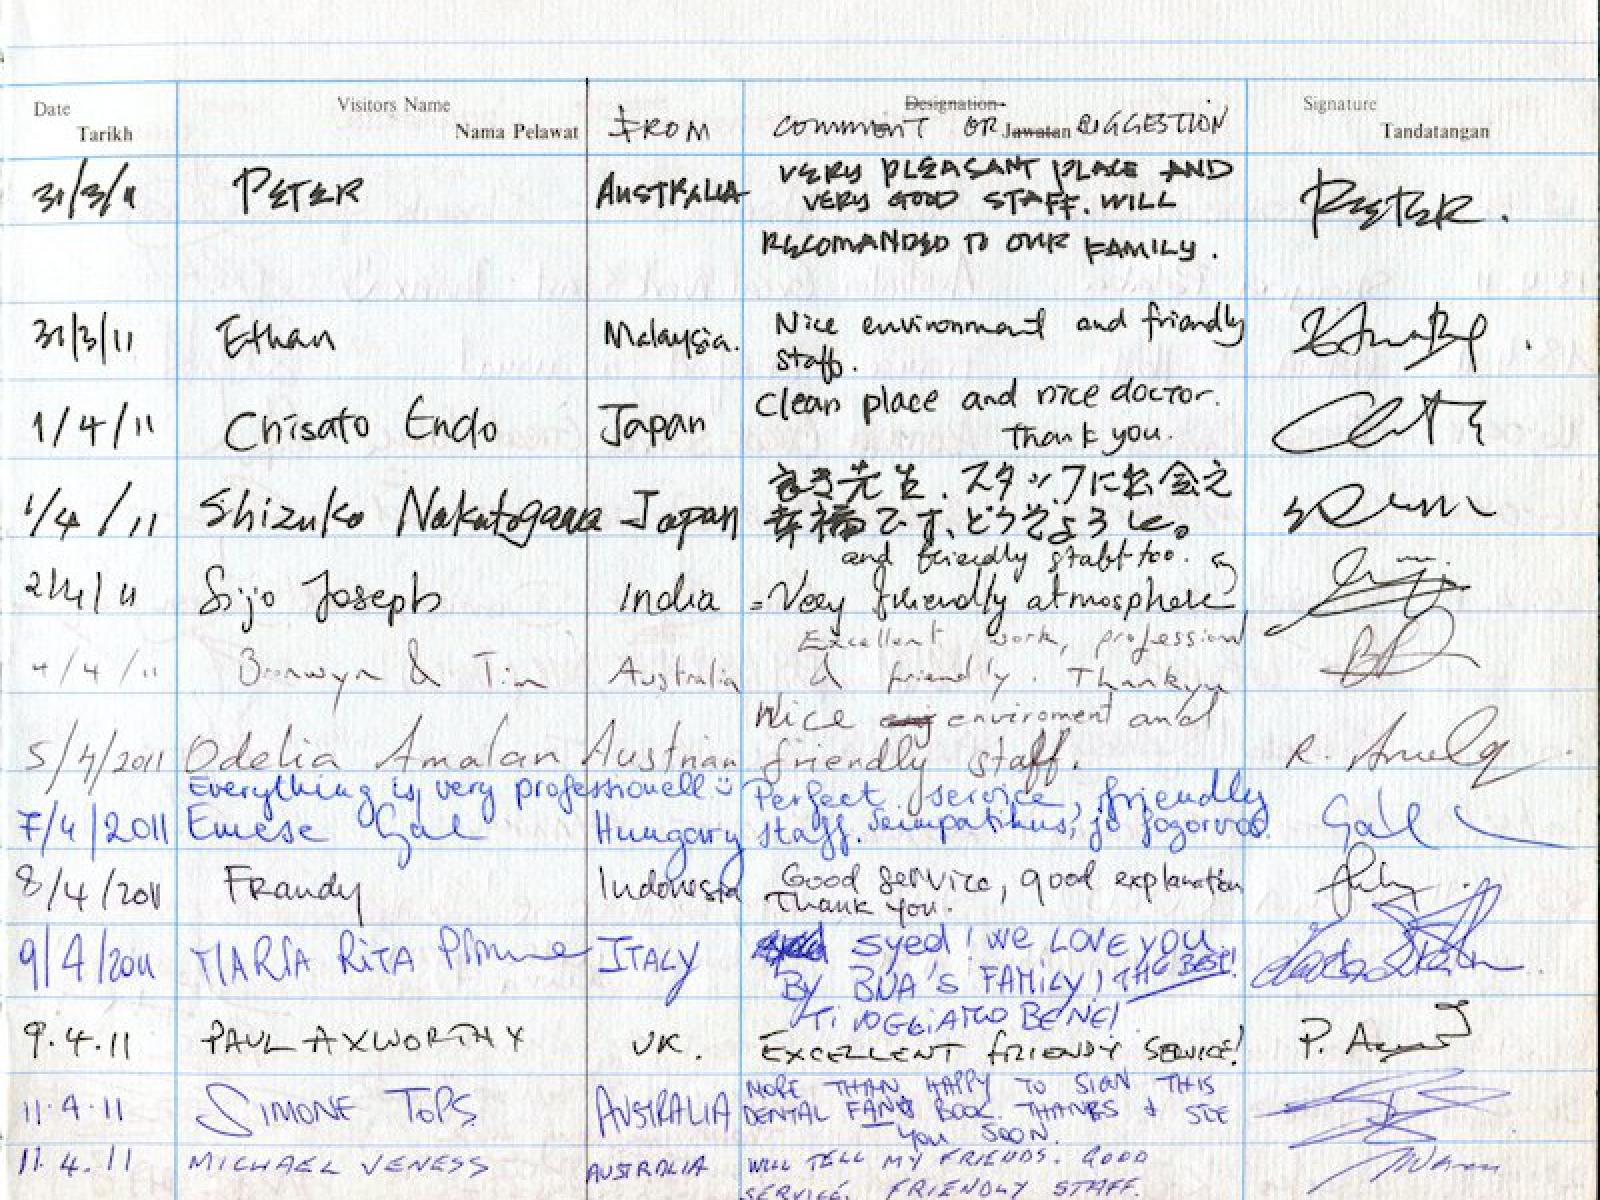 Date Visitors Name Designation Signature
Tarikh Nama Pelawat FROM COMMENT OR Jawatan SIGGESTION Tandatangan
31/3/11 PETER AUSTRALIA VERY PLEASANT PLACE AND
VERY GOOD STAFF. WILL PEETER.
RECOMANDED TO OUR FAMILY.
31/3/11 Ethan Malaysia. Nice environment and friendly
staff.
1/4/11 Chisato Endo Japan Clean place and nice doctor.
Thank you.
良き先生、スタッフに出会え
1/4/11 Shizuko Nakatogawa Japan 幸福です、どうぞよろしく。
and friendly staff too.
2/4/11 Sijo Joseph India Very friendly atmosphere
Excellent work, professional
4/4/11 Bronwyn & Tim Australia & friendly. Thankyu
Nice enviroment and
5/4/2011 Odelia Amalan Austrian friendly staff.
Everything is very professionell Perfect service, friendly
7/4/2011 Emese Gal Hungary staff. Szimpatikus, jó fogorvos. Gal
8/4/2011 Frandy Indonesia Good service, good explanation
Thank you.
9/4/2011 MARIA RITA ITALY SYED! WE LOVE YOU
BY BNA'S FAMILY! THE BEST!
TI VOGLIAMO BENE!
9.4.11 PAUL AXWORTHY UK. EXCELLENT FRIENDY SERVICE!
MORE THAN HAPPY TO SIGN THIS
11.4.11 SIMONE TOPS AUSTRALIA DENTAL FANG BOOK. THANKS & SEE
YOU SOON.
11.4.11 MICHAEL VENESS AUSTRALIA WILL TELL MY FRIENDS. GOOD
SERVICE. FRIENDLY STAFF.